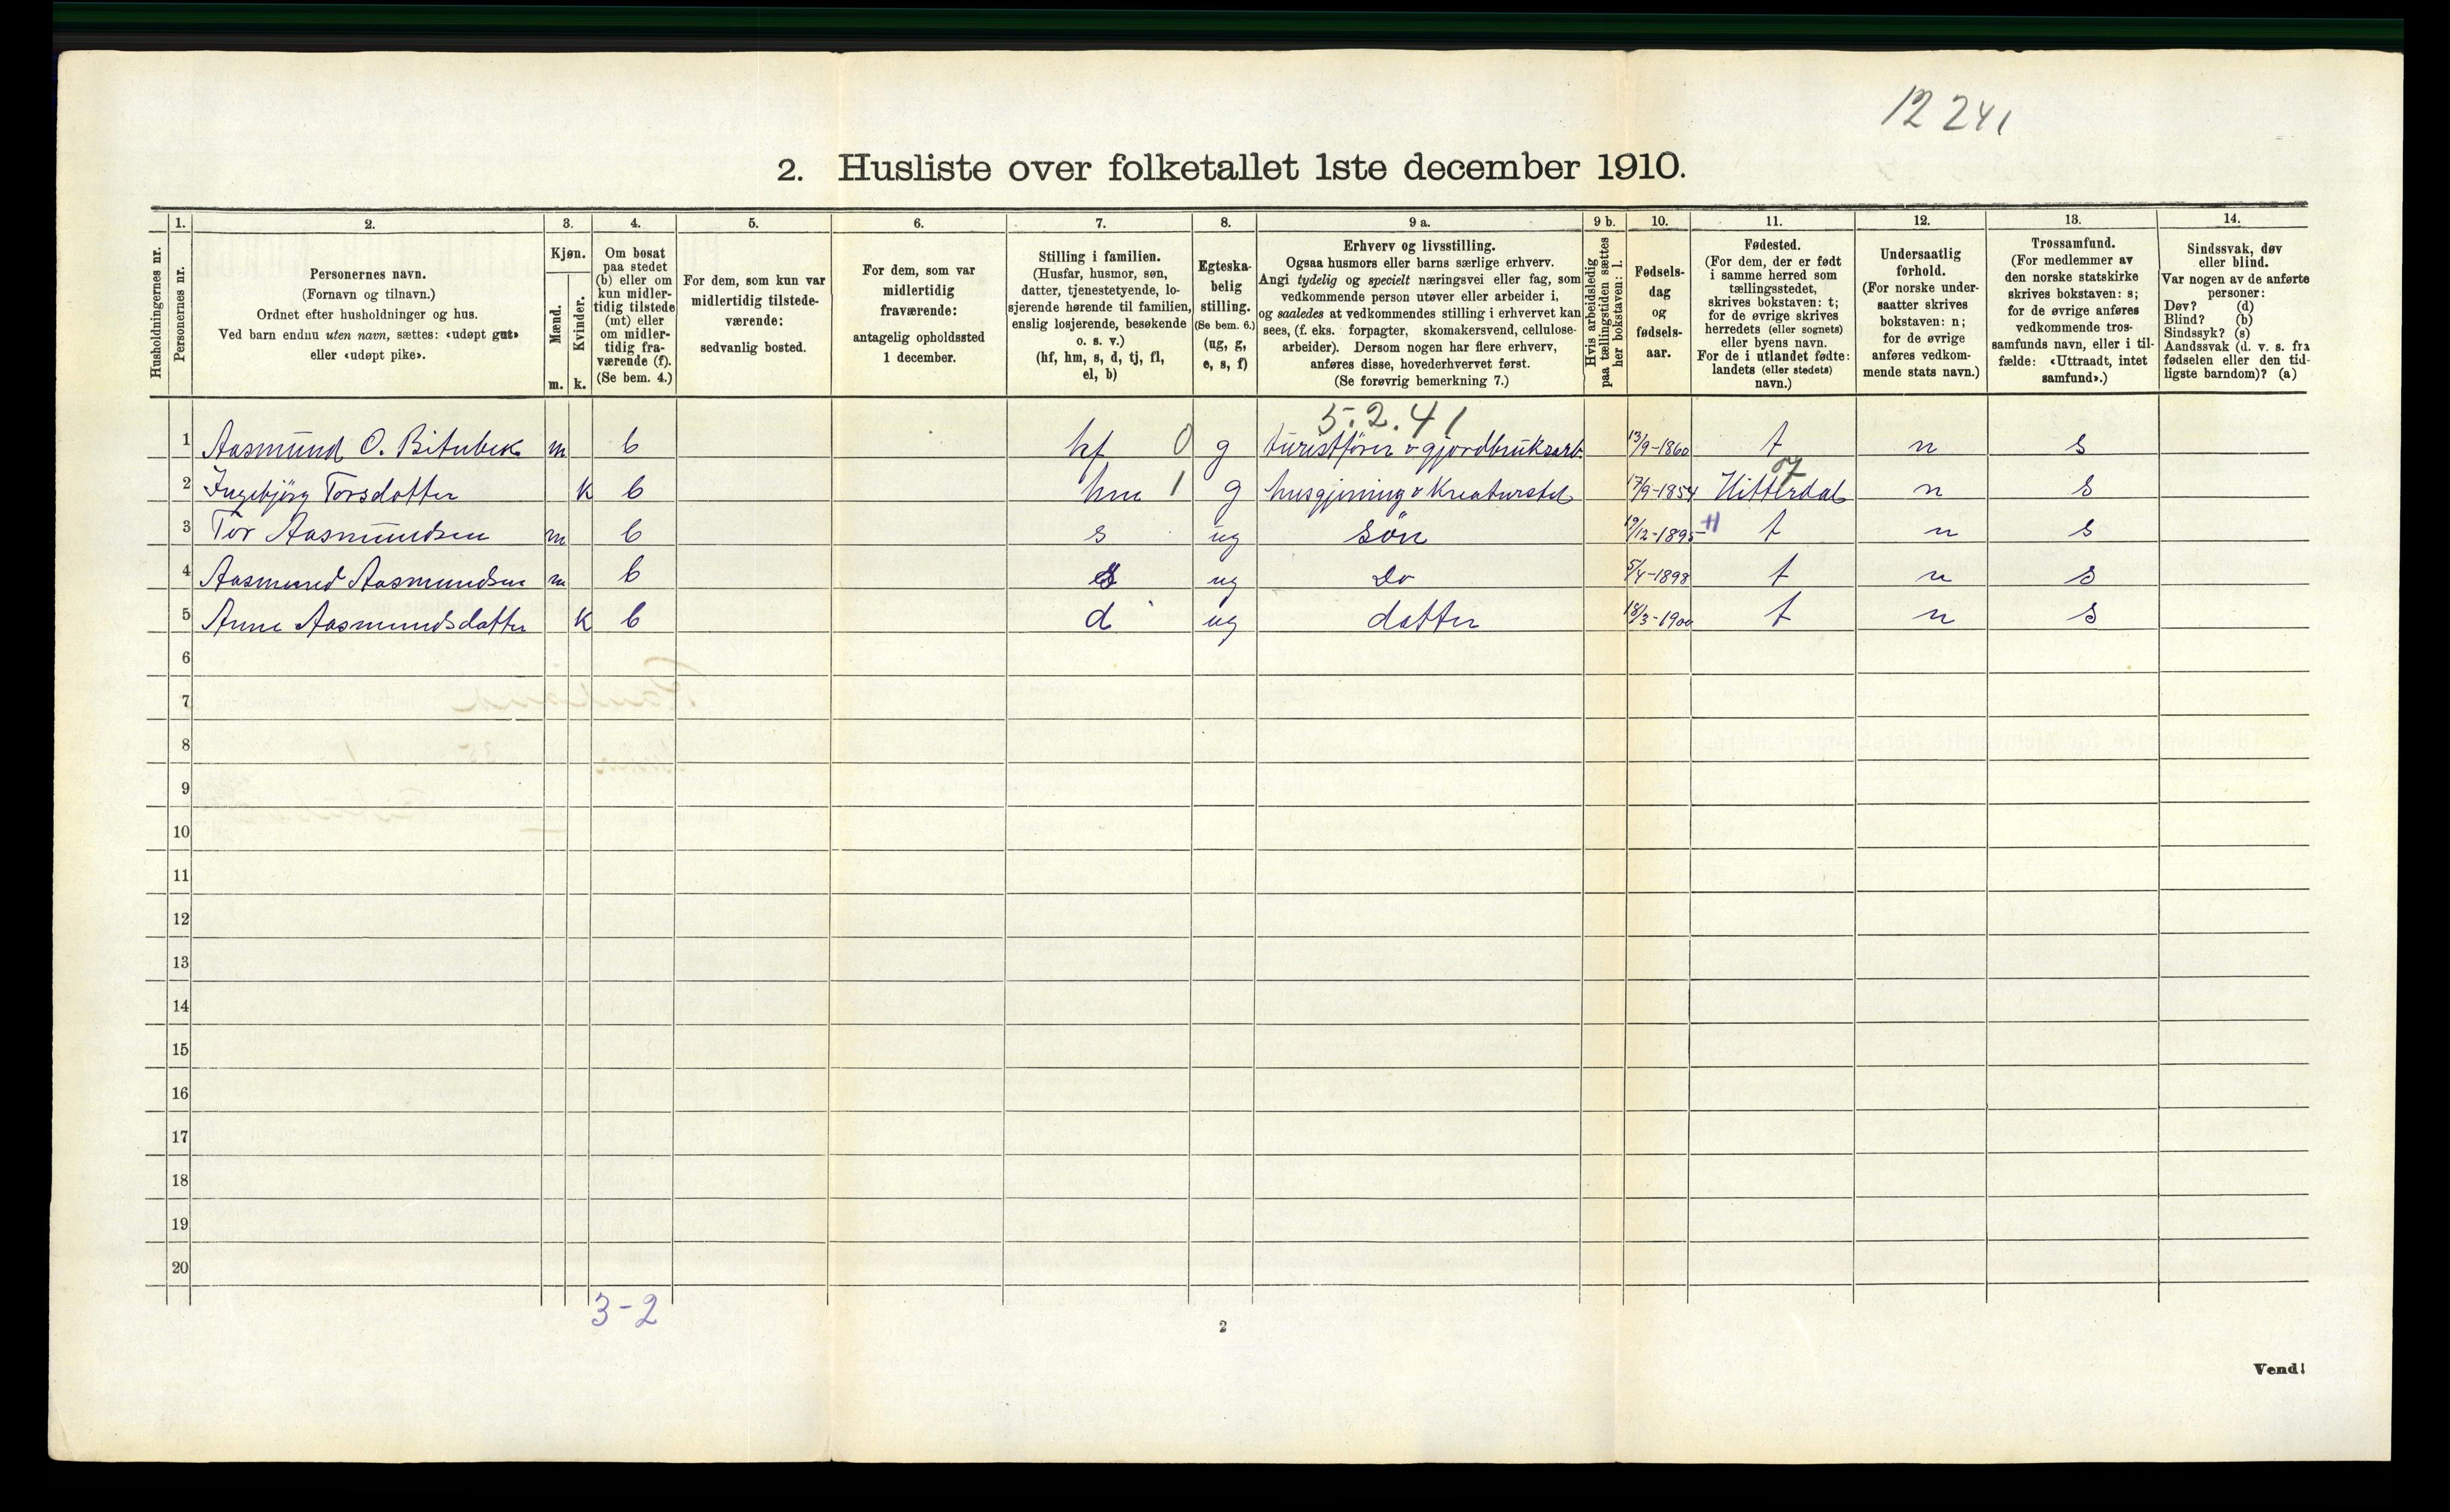 12 241
2. Husliste over folketallet 1ste december 1910.
Husholdningernes nr.
1.
Personernes nr.
2.
Personernes navn.
(Fornavn og tilnavn.)
Ordnet efter husholdninger og hus.
Ved barn endnu uten navn, sættes: «udøpt gut»
eller «udøpt pike».
3.
Kjøn.
Mænd.
m.
Kvinder.
k.
4.
Om bosat
paa stedet
(b) eller om
kun midler-
tidig tilstede
(mt) eller
om midler-
tidig fra-
værende (f).
(Se bem. 4.)
5.
For dem, som kun var
midlertidig tilstede-
værende:
sedvanlig bosted.
6.
For dem, som var
midlertidig
fraværende:
antagelig opholdssted
1 december.
7.
Stilling i familien.
(Husfar, husmor, søn,
datter, tjenestetyende, lo-
sjerende hørende til familien,
enslig losjerende, besøkende
o. s. v.)
(hf, hm, s, d, tj, fl,
el, b)
8.
Egteska-
belig
stilling.
(Se bem. 6.)
(ug, g,
e, s, f)
9 a.
Erhverv og livsstilling.
Ogsaa husmors eller barns særlige erhverv.
Angi tydelig og specielt næringsvei eller fag, som
vedkommende person utøver eller arbeider i,
og saaledes at vedkommendes stilling i erhvervet kan
sees, (f. eks. forpagter, skomakersvend, cellulose-
arbeider). Dersom nogen har flere erhverv,
anføres disse, hovederhvervet først.
(Se forøvrig bemerkning 7.)
9 b.
Hvis arbeidsledig
paa tællingstiden sættes
her bokstaven: l.
10.
Fødsels-
dag
og
fødsels-
aar.
11.
Fødested.
(For dem, der er født
i samme herred som
tællingsstedet,
skrives bokstaven: t;
for de øvrige skrives
herredets (eller sognets)
eller byens navn.
For de i utlandet fødte:
landets (eller stedets)
navn.)
12.
Undersaatlig
forhold.
(For norske under-
saatter skrives
bokstaven: n;
for de øvrige
anføres vedkom-
mende stats navn.)
13.
Trossamfund.
(For medlemmer av
den norske statskirke
skrives bokstaven: s;
for de øvrige anføres
vedkommende tros-
samfunds navn, eller i til-
fælde: «Uttraadt, intet
samfund».)
14.
Sindssvak, døv
eller blind.
Var nogen av de anførte
personer:
Døv? (d)
Blind? (b)
Sindssyk? (s)
Aandssvak (d. v. s. fra
fødselen eller den tid-
ligste barndom)? (a)
5.2.41
1 Aasmund O. Bitubek m b hf 0 g turistfører & gjordbruksarb. 13/9-1860 t n s
07
2 Ingebjörg Torsdatter k b hm 1 g husgjerning & Kreaturstel 17/9-1854 Hitterdal n s
3 Tor Aasmundsen m b s ug søn 19/12-1895 t n s
4 Aasmund Aasmundsen m b s ug Do 5/4-1898 t n s
5 Anne Aasmundsdatter k b d ug datter 18/3-1900 t n s
6
7
8
9
10
11
12
13
14
15
16
17
18
19
20
3-2
2
Vend!